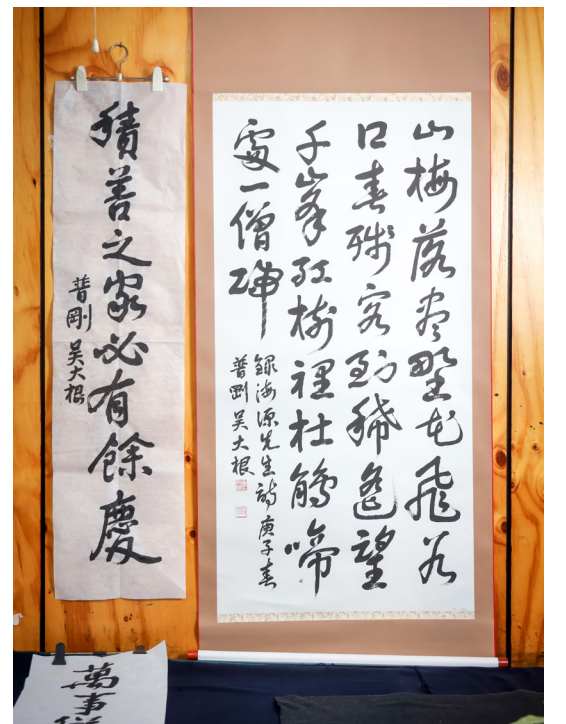 山梅落盡野花飛谷
口春殘客到稀遙望
千峯紅樹裡杜鵑啼
處一僧歸
錄海源先生詩庚子春
普剛吳大根
積善之家必有餘慶
普剛吳大根
萬事